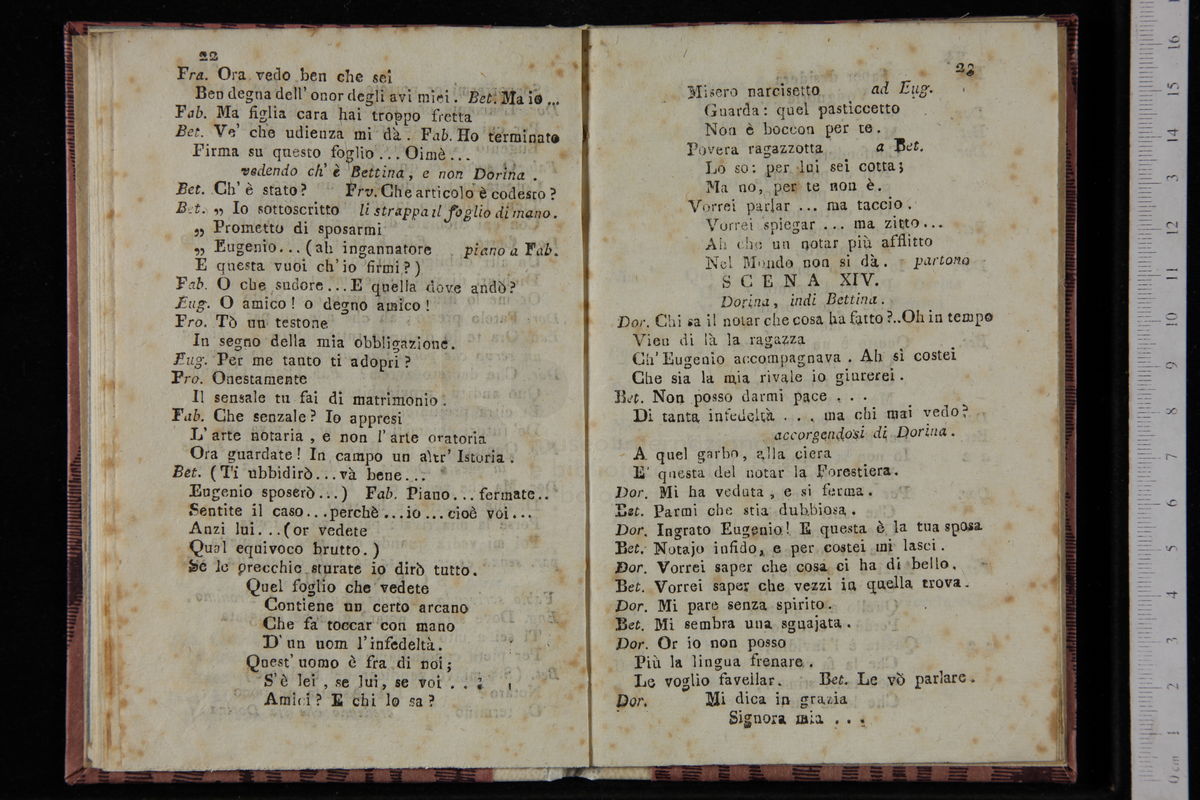 22
Fra. Ora vedo ben che sei
Ben degna dell' onor degli avi miei. Bet. Ma io ...
Fab. Ma figlia cara hai troppo fretta
Bet. Ve' che udienza mi dà. Fab. Ho terminato
Firma su questo foglio ... Oimè ...
vedendo ch' è Bettina, e non Dorina.
Bet. Ch' è stato? Fro. Che articolo è codesto?
Bet. „ Io sottoscritto li strappa il foglio di mano.
„ Prometto di sposarmi
„ Eugenio... (ah ingannatore piano a Fab.
E questa vuoi ch' io firmi?)
Fab. O che sudore... E quella dove andò?
Eug. O amico! o degno amico!
Fro. Tò un testone
In segno della mia obbligazione.
Eug. Per me tanto ti adopri?
Fro. Onestamente
Il sensale tu fai di matrimonio.
Fab. Che senzale? Io appresi
L' arte notaria, e non l' arte oratoria
Ora guardate! In campo un altr' Istoria.
Bet. (Ti ubbidirò...và bene...
Eugenio sposerò...) Fab. Piano...fermate..
Sentite il caso...perchè...io...cioè voi...
Anzi lui...(or vedete
Qual equivoco brutto.)
Se le orecchie sturate io dirò tutto.
Quel foglio che vedete
Contiene un certo arcano
Che fa toccar con mano
D' un uom l' infedeltà.
Quest' uomo è fra di noi;
S' è lei, se lui, se voi ...
Amici? E chi lo sa?
23
Misero narcisetto ad Eug.
Guarda: quel pasticcetto
Non è boccon per te.
Povera ragazzotta a Bet.
Lo so: per lui sei cotta;
Ma no, per te non è.
Vorrei parlar ... ma taccio.
Vorrei spiegar ... ma zitto...
Ah che un notar più afflitto
Nel Mondo non si dà. partono
SCENA XIV.
Dorina, indi Bettina.
Dor. Chi sa il notar che cosa ha fatto?..Oh in tempo
Vien di là la ragazza
Ch' Eugenio accompagnava. Ah sì costei
Che sia la mia rivale io giurerei.
Bet. Non posso darmi pace ...
Di tanta infedeltà .... ma chi mai vedo?
accorgendosi di Dorina.
A quel garbo, alla ciera
E' questa del notar la Forestiera.
Dor. Mi ha veduta, e si ferma.
Bet. Parmi che stia dubbiosa.
Dor. Ingrato Eugenio! E questa è la tua sposa
Bet. Notajo infido, e per costei mi lasci.
Dor. Vorrei saper che cosa ci ha di bello.
Bet. Vorrei saper che vezzi in quella trova.
Dor. Mi pare senza spirito.
Bet. Mi sembra una sguajata.
Dor. Or io non posso
Più la lingua frenare.
Le voglio favellar. Bet. Le vò parlare.
Dor. Mi dica in grazia
Signora mia ...